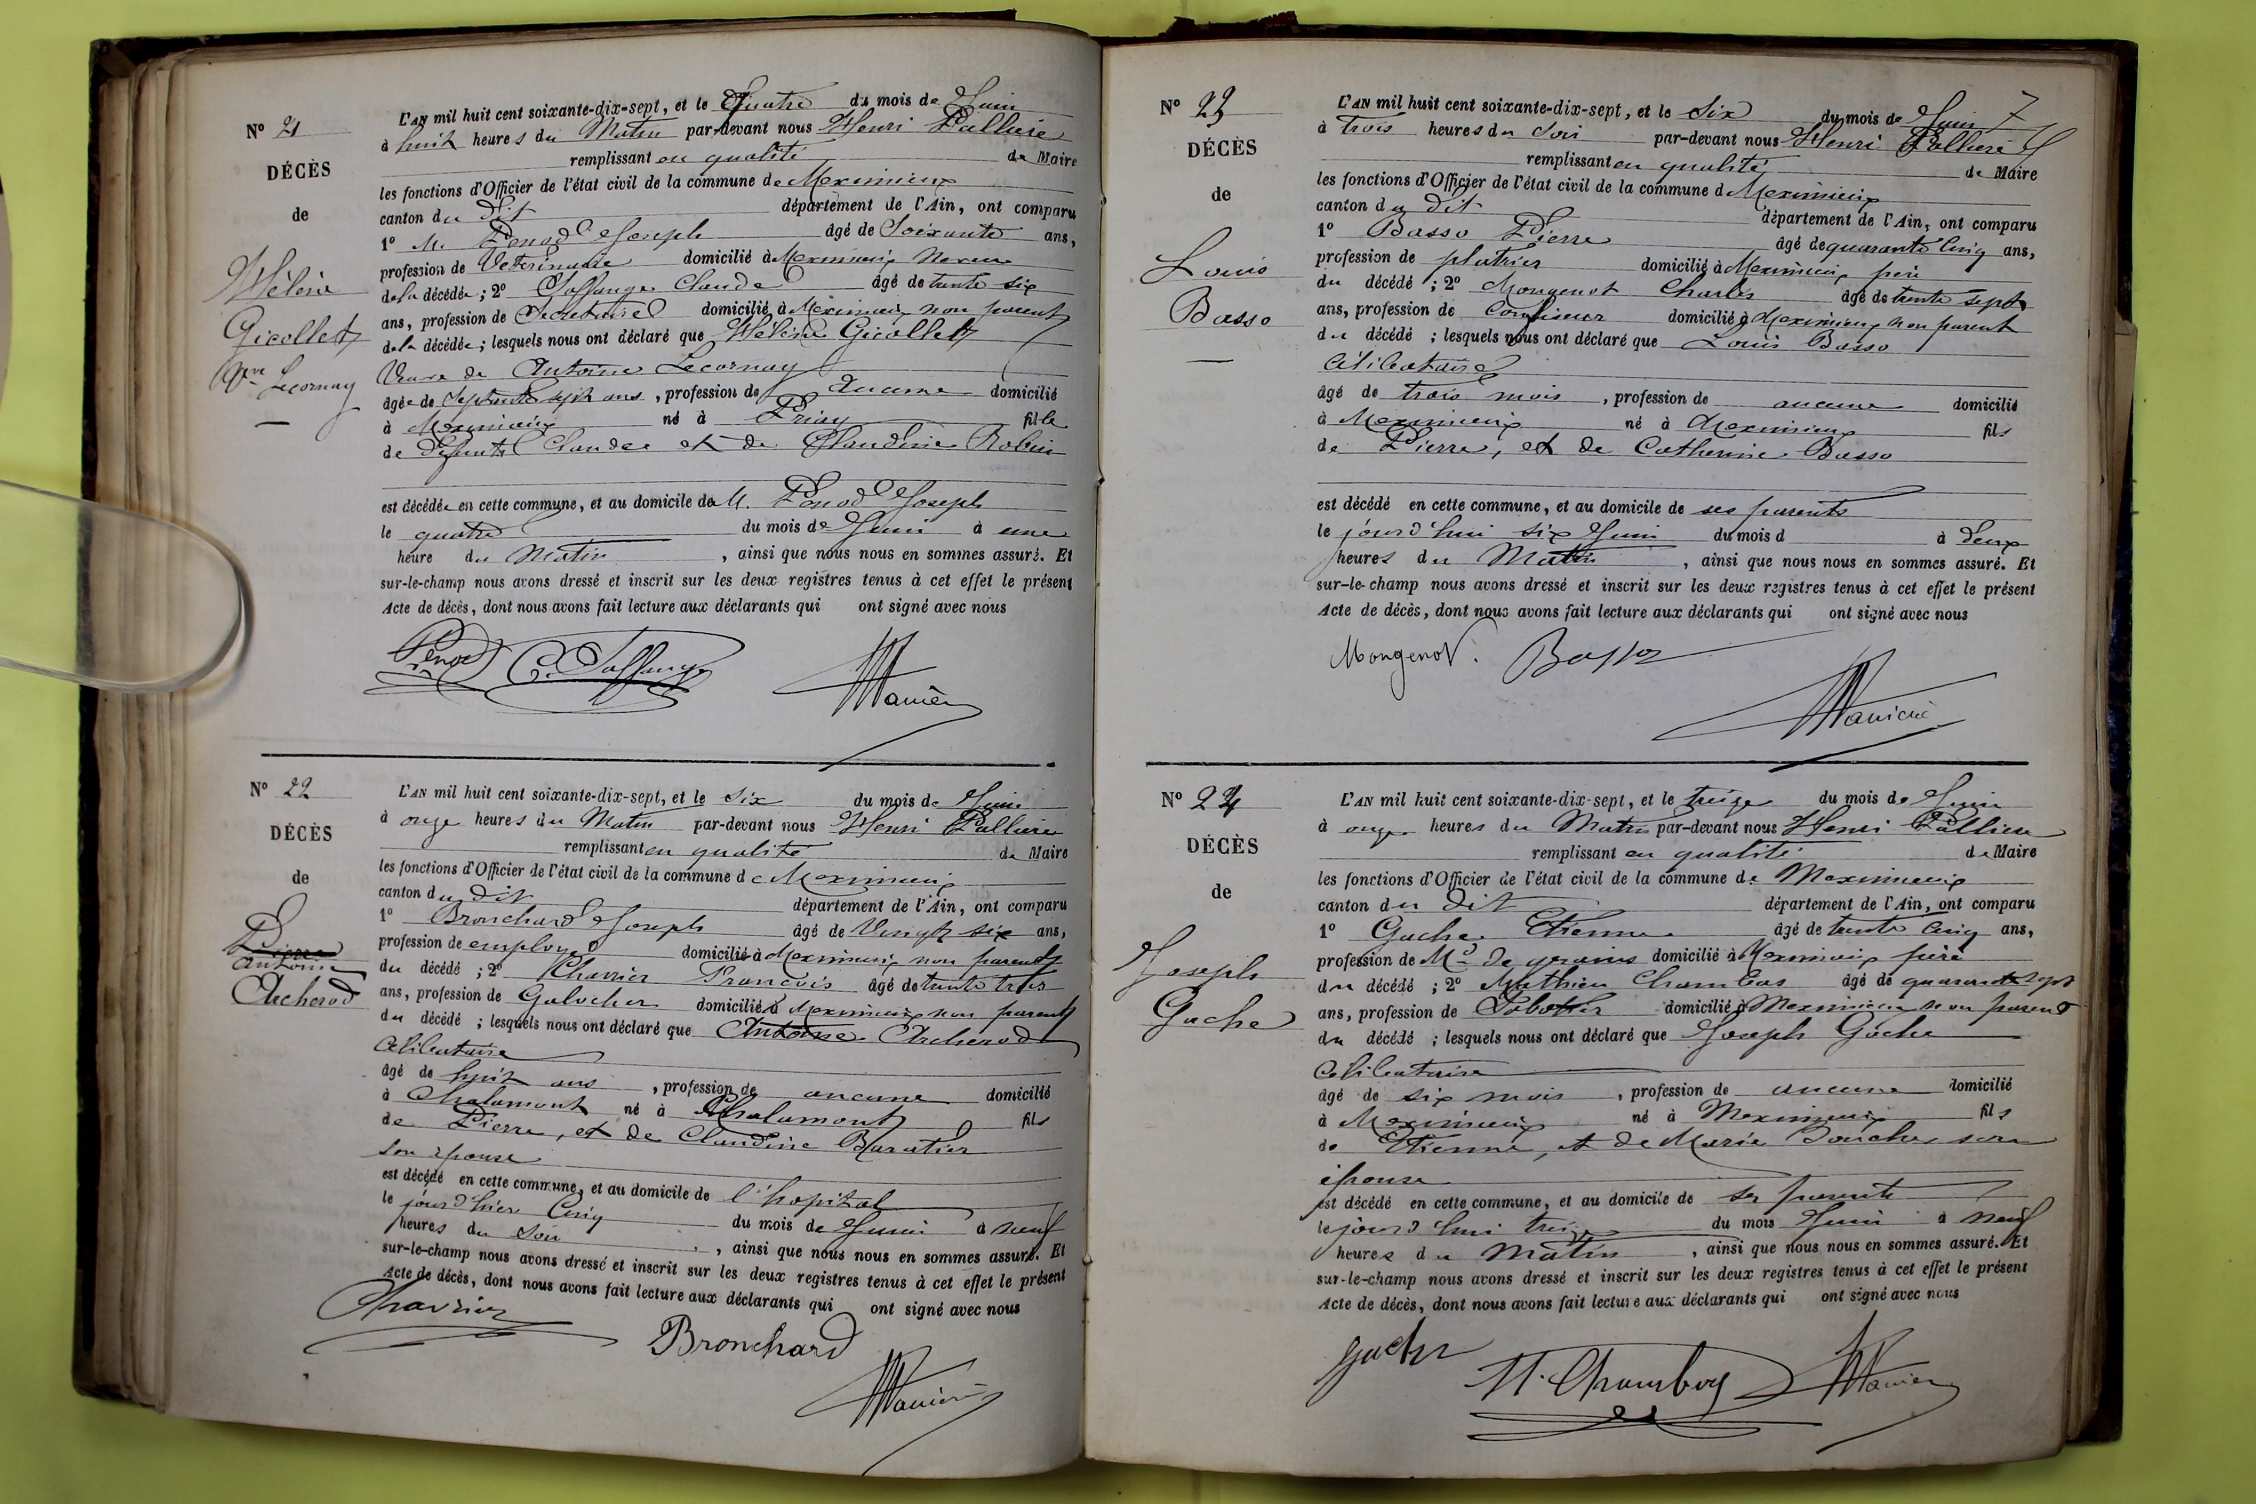 N° 21
DÉCÈS
de
Hélène
Gicollet
Vve Lecornay
L'AN mil huit cent soixante-dix-sept, et le Quatre du mois de Juin
à huit heures du Matin par-devant nous Henri Pallière
remplissant en qualité de Maire
les fonctions d'Officier de l'état civil de la commune de Meximieux
canton du dit département de l'Ain, ont comparu
1° M. Penod Joseph âgé de Soixante ans,
profession de Vétérinaire domicilié à Meximieux Neveu
de la décédée ; 2° Claude âgé de trente six
ans, profession de Secretaire domicilié à Meximieux non parent
de la décédée ; lesquels nous ont déclaré que Hélène Gicollet
Veuve de Antoine Lecornay
âgée de Septante sept ans , profession de aucune domicilié
à Meximieux né à fille
de défunts Claude et de Claudine Robin
est décédée en cette commune, et au domicile de M. Penod Joseph
le quatre du mois de Juin à une
heure du Matin , ainsi que nous nous en sommes assuré. Et
sur-le-champ nous avons dressé et inscrit sur les deux registres tenus à cet effet le présent
Acte de décès, dont nous avons fait lecture aux déclarants qui ont signé avec nous
Penod
N° 22
DÉCÈS
de
Pierre
Antoine
Archerod
L'AN mil huit cent soixante-dix-sept, et le six du mois de Juin
à onze heures du Matin par-devant nous Henri Pallière
remplissant en qualité de Maire
les fonctions d'Officier de l'état civil de la commune de Meximieux
canton du dit département de l'Ain, ont comparu
1° Bronchard Joseph âgé de Vingt six ans,
profession de employé domicilié à Meximieux non parent
du décédé ; 2° Charrier François âgé de trente trois
ans, profession de Galocher domicilié à Meximieux non parent
du décédé ; lesquels nous ont déclaré que Antoine Archerod
Célibataire
âgé de huit ans , profession de aucune domicilié
à Chalamont né à Chalamont fils
de Pierre, et de Claudine Baratier
son épouse
est décédé en cette commune, et au domicile de l'hopital
le jourd'hier Cinq du mois de Juin à neuf
heures du Soir , ainsi que nous nous en sommes assuré. Et
sur-le-champ nous avons dressé et inscrit sur les deux registres tenus à cet effet le présent
Acte de décès, dont nous avons fait lecture aux déclarants qui ont signé avec nous
Charrier
Bronchard
N° 23
DÉCÈS
de
Louis
Basso
L'AN mil huit cent soixante-dix-sept, et le Six du mois de Juin
à trois heures du Soir par-devant nous Henri Pallière
remplissant en qualité de Maire
les fonctions d'Officier de l'état civil de la commune d Meximieux
canton du dit département de l'Ain, ont comparu
1° Basso Pierre âgé de quarante cinq ans,
profession de platrier domicilié à Meximieux père
du décédé ; 2° Mougenot Charles âgé de trente sept
ans, profession de Confiseur domicilié à Meximieux non parent
du décédé ; lesquels nous ont déclaré que Louis Basso
Célibataire
âgé de trois mois , profession de aucune domicilié
à Meximieux né à Meximieux fils
de Pierre, et de Catherine Basso
est décédé en cette commune, et au domicile de ses parents
le jourd'hui six Juin du mois d à deux
heures du Matin , ainsi que nous nous en sommes assuré. Et
sur-le-champ nous avons dressé et inscrit sur les deux registres tenus à cet effet le présent
Acte de décès, dont nous avons fait lecture aux déclarants qui ont signé avec nous
Mougenot. Basso
N° 24
DÉCÈS
de
Joseph
Gache
L'AN mil huit cent soixante-dix-sept, et le treize du mois de Juin
à onze heures du Matin par-devant nous Henri Pallière
remplissant en qualité de Maire
les fonctions d'Officier de l'état civil de la commune de Meximieux
canton du dit département de l'Ain, ont comparu
1° Gache Etienne âgé de trente cinq ans,
profession de Md de grains domicilié à Meximieux père
du décédé ; 2° Mathieu Chambas âgé de quarante sept
ans, profession de Sabotier domicilié à Meximieux non parent
du décédé ; lesquels nous ont déclaré que Joseph Gache
Célibataire
âgé de six mois , profession de aucune domicilié
à Meximieux né à Meximieux fils
de Etienne, et de Marie son
épouse
est décédé en cette commune, et au domicile de ses parents
le jourd'hui treize du mois Juin à neuf
heures du Matin , ainsi que nous nous en sommes assuré. Et
sur-le-champ nous avons dressé et inscrit sur les deux registres tenus à cet effet le présent
Acte de décès, dont nous avons fait lecture aux déclarants qui ont signé avec nous
Gache